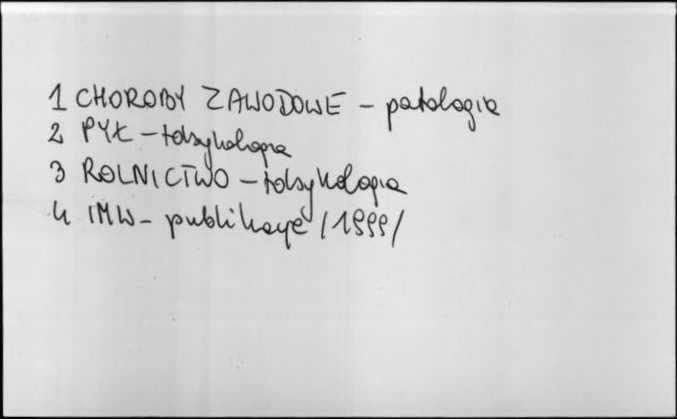 1 CHOROBY ZAWODOWE - patologia
2 PYŁ - toksykologia
3 ROLNICTWO - toksykologia
4 IMW - publikacje /1999/